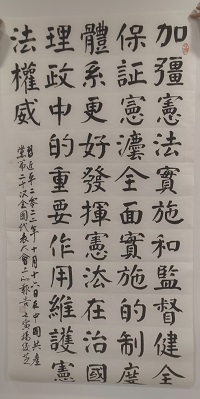 加彊憲法實施和監督健全
保証憲灋全面實施的制度
體系更好發揮憲法在治國
理政中的重要作用維護憲
法權威
二零二二年十月十六日在中國共產
黨第二十次全國代表大會上的報告